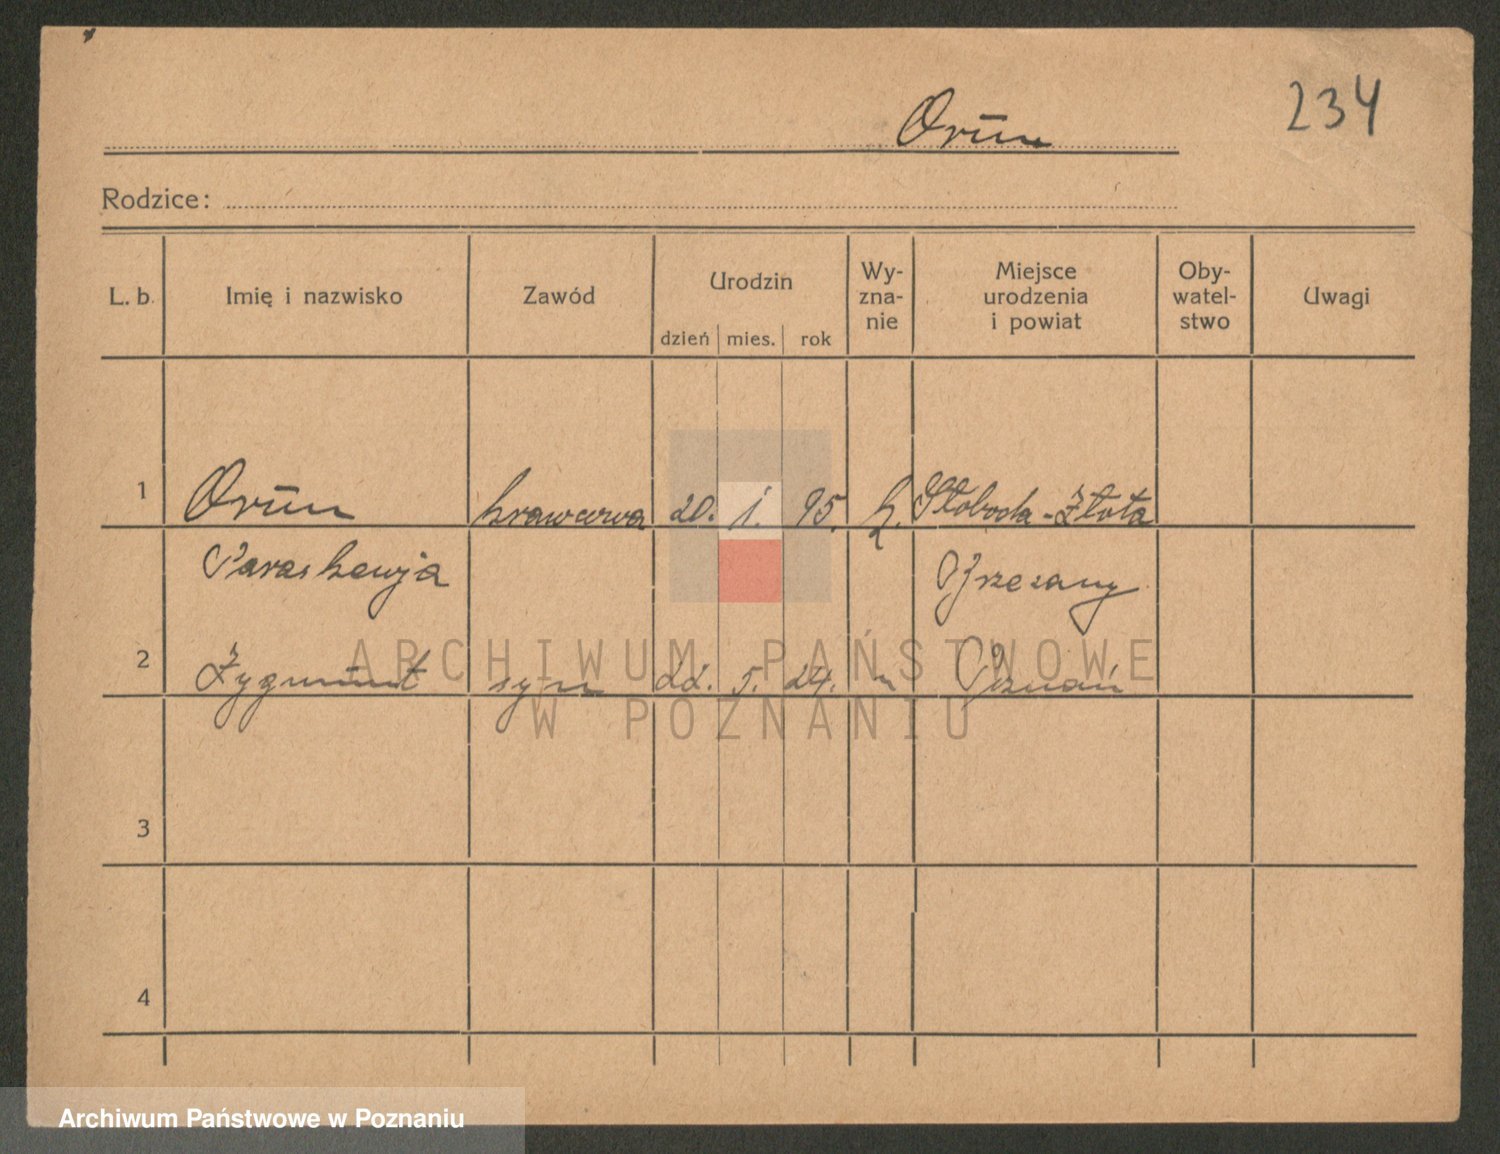 234
Orun
Rodzice:
L. b. Imię i nazwisko Zawód Urodzin Wy- Miejsce Oby- Uwagi
zna- urodzenia watel-
nie i powiat stwo
dzień mies. rok
1 Orun krawcowa 20. 1. 95. Słoboda-Złota
Paraskewja Brzezany
2 Zygmunt syn 22. 5. 24. " Poznań
3
4
ARCHIWUM PAŃSTWOWE
W POZNANIU
Archiwum Państwowe w Poznaniu